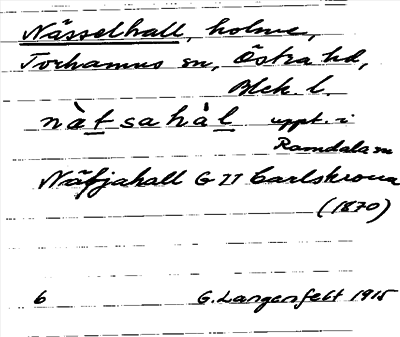 Nässelhall, holme,
Torhamns sn, Östra hd,
Blek. l.
nàtsahàl uppt. i
Ramdala sn
Nätjahall G II Carlskrona
(1870)
6 G. Langenfelt 1915